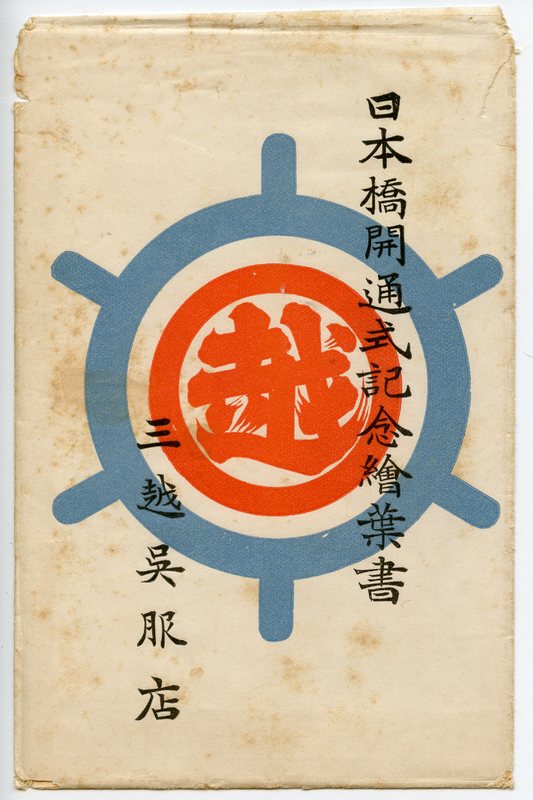 日本橋開通式記念繪葉書
越
三越呉服店